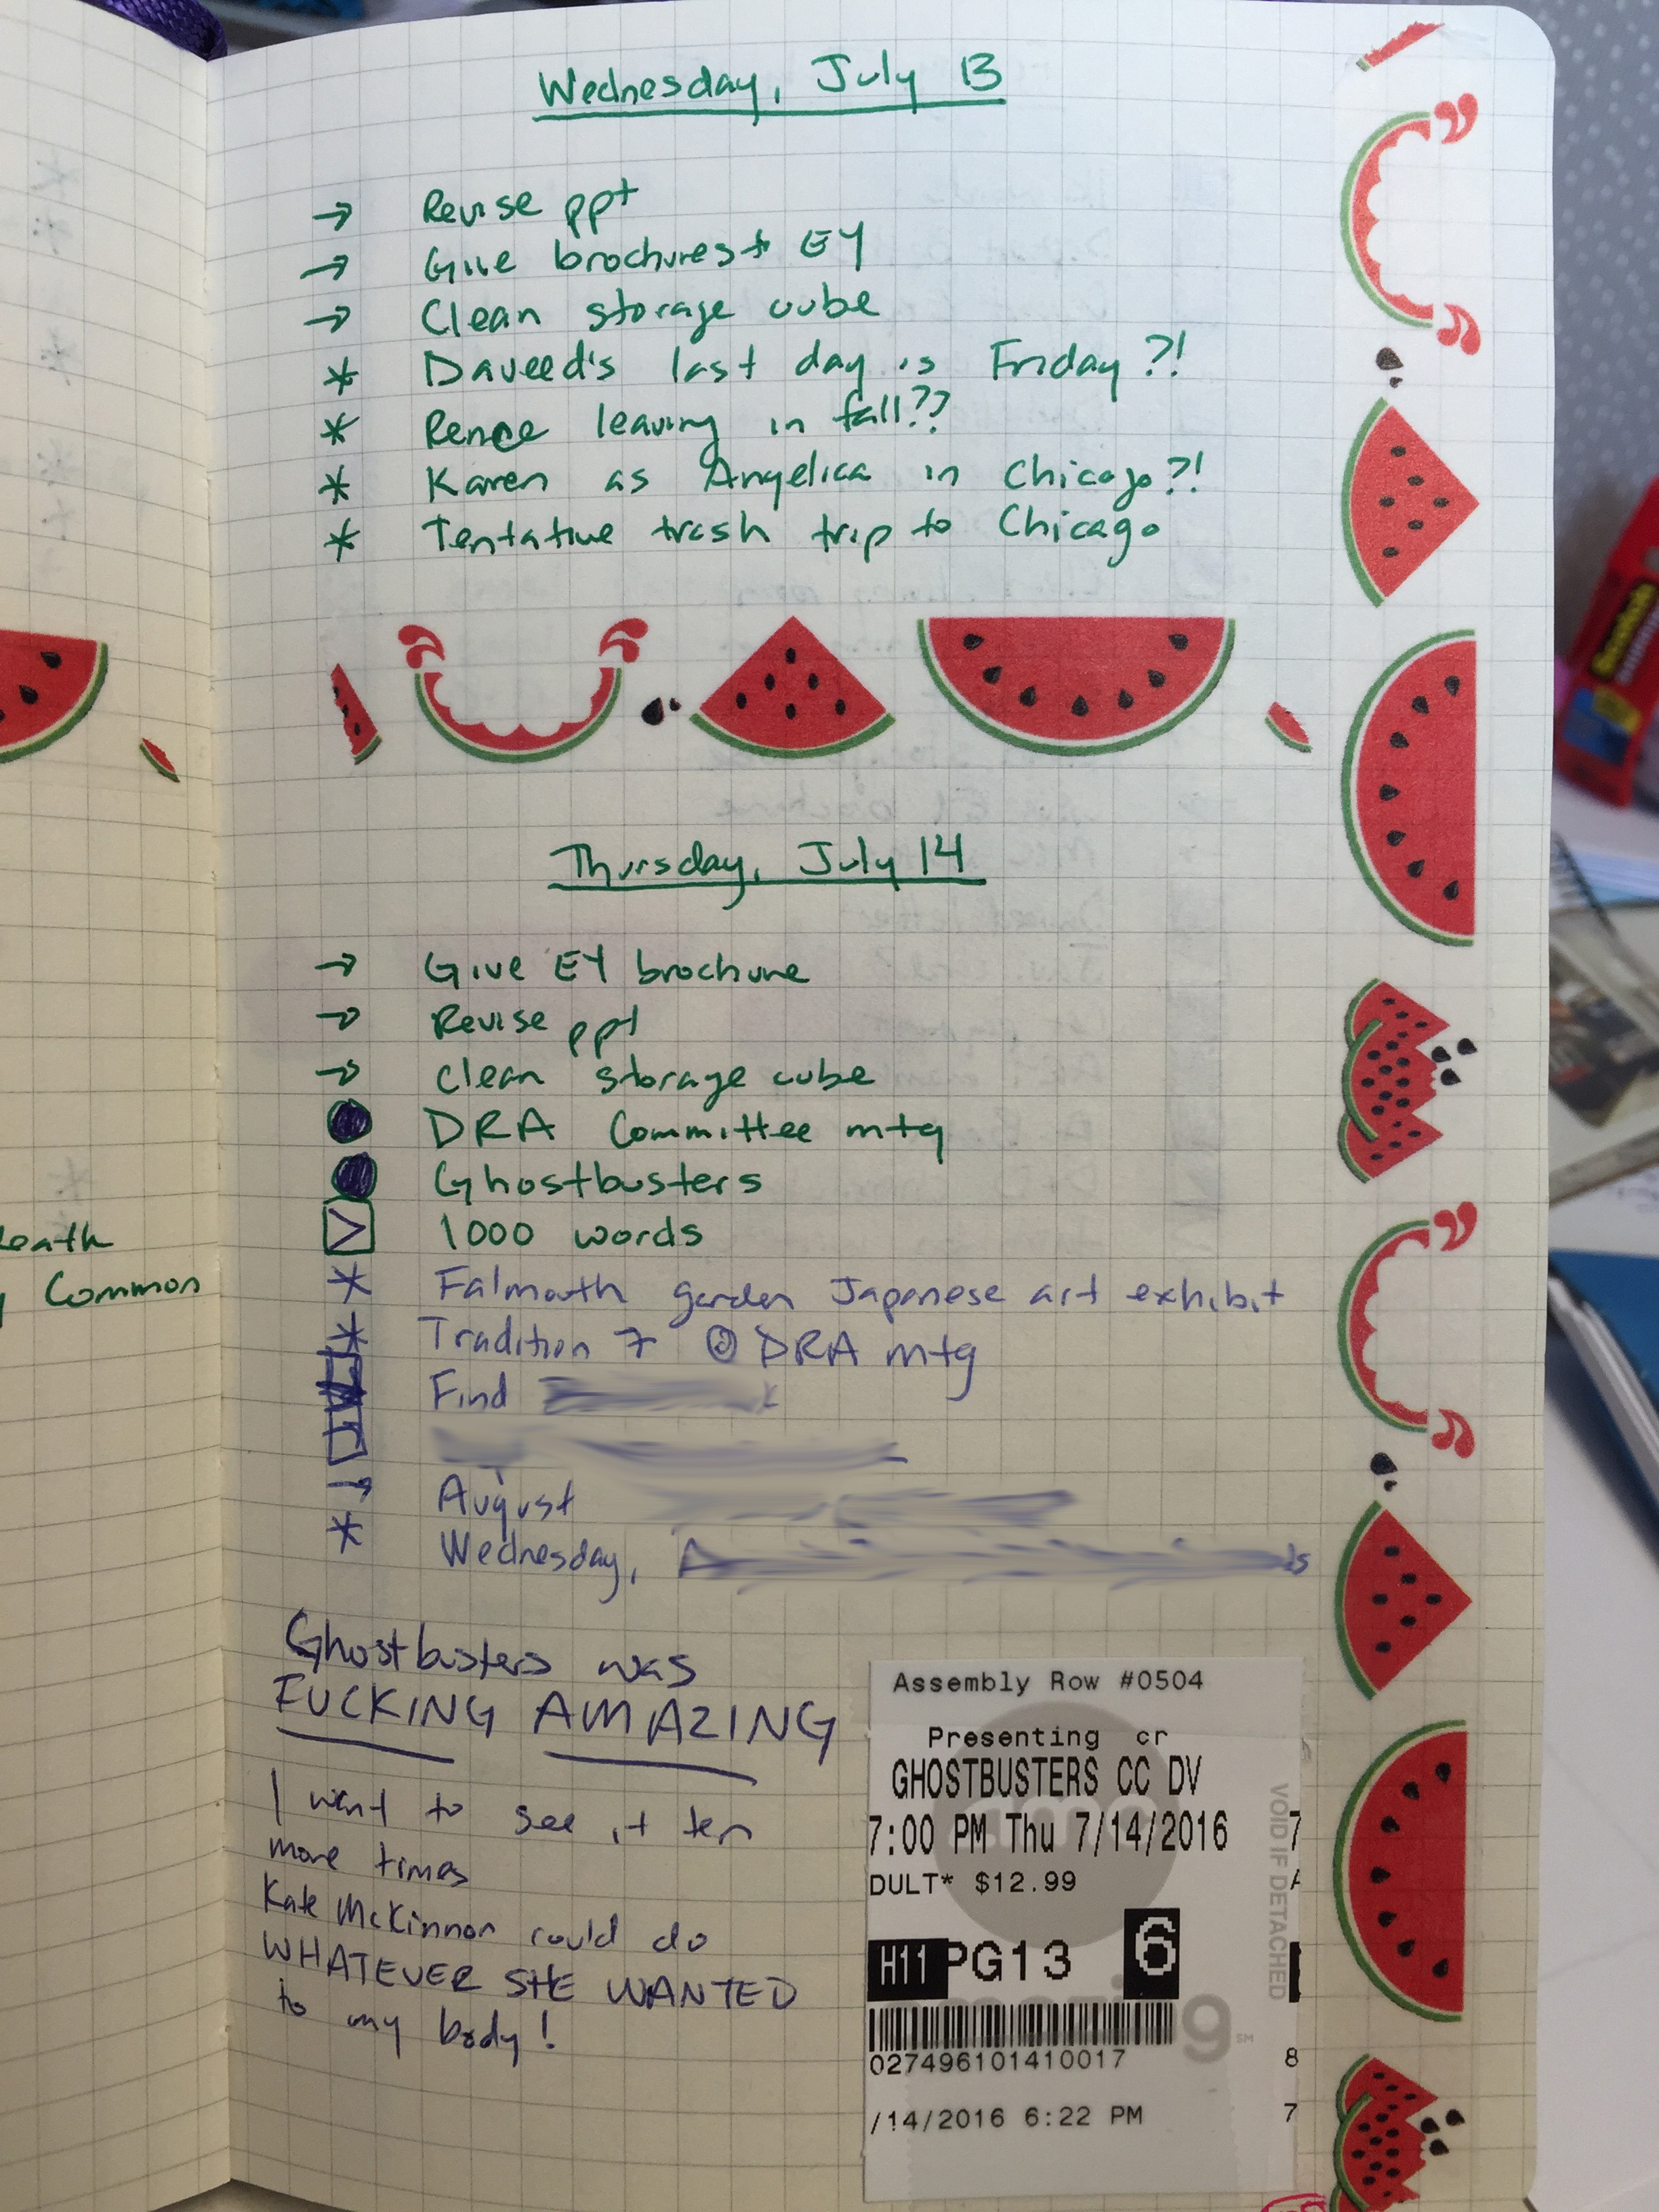 Wednesday, July 13
→ Revise ppt
→ Give brochures to EY
→ Clean storage cube
* Daveed's last day is Friday?!
* Renee leaving in fall??
* Karen as Angelica in Chicago?!
* Tentative trash trip to Chicago
Thursday, July 14
→ Give EY brochure
→ Revise ppt
→ Clean storage cube
DRA Committee mtg
Ghostbusters
1000 words
* Falmouth garden Japanese art exhibit
* Tradition 7 @ DRA mtg
Find
August
* Wednesday,
Ghostbusters was
FUCKING AMAZING
I want to see it ten
more times
Kate McKinnon could do
WHATEVER SHE WANTED
to my body!
Assembly Row #0504
Presenting cr
GHOSTBUSTERS CC DV
7:00 PM Thu 7/14/2016 7
DULT* $12.99
H11 PG13 6
027496101410017
8
/14/2016 6:22 PM
7
VOID IF DETACHED
amazing
eath
Common
Scotch